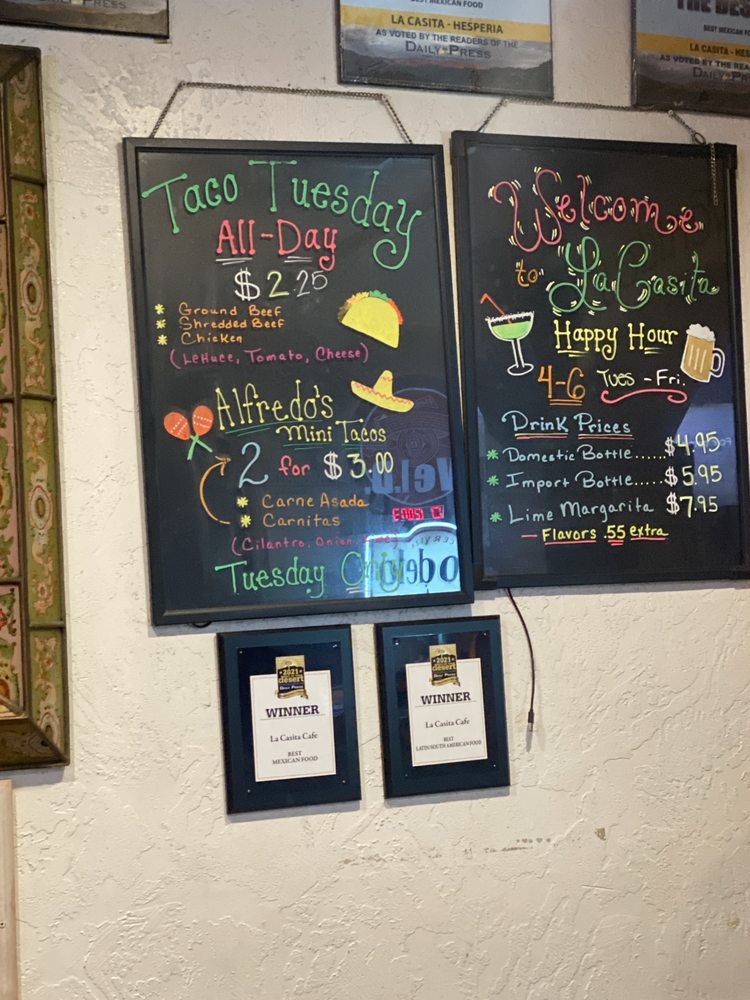 DAILY PRESS
BEST MEXICAN FOOD
LA CASITA - HESPERIA
AS VOTED BY THE READERS OF THE
DAILY PRESS
THE DES
BEST MEXICAN FO
LA CASITA - HES
AS VOTED BY THE REA
DAILY PRE
Taco Tuesday
All-Day
$2.25
* Ground Beef
* Shredded Beef
* Chicken
(Lettuce, Tomato, Cheese)
Alfredo's
Mini Tacos
2 for $3.00
* Carne Asada
* Carnitas
(Cilantro, Onion,
Tuesday Only
Welcome
to La Casita
Happy Hour
4-6 Tues - Fri.
Drink Prices
* Domestic Bottle..... $4.95
* Import Bottle..... $5.95
* Lime Margarita $7.95
— Flavors .55 extra
2021
desert
Daily Press
WINNER
La Casita Cafe
BEST
MEXICAN FOOD
2021
desert
Daily Press
WINNER
La Casita Cafe
BEST
LATIN/SOUTH AMERICAN FOOD